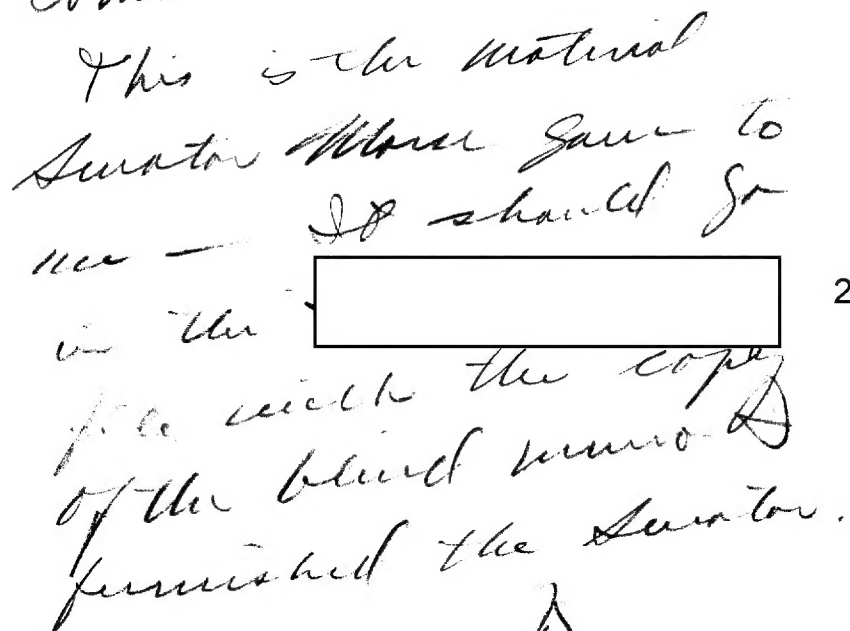 This is the material
Senator Morse gave to
me — It should go
in the
2
file with the copy
of the blind memo
furnished the Senator.